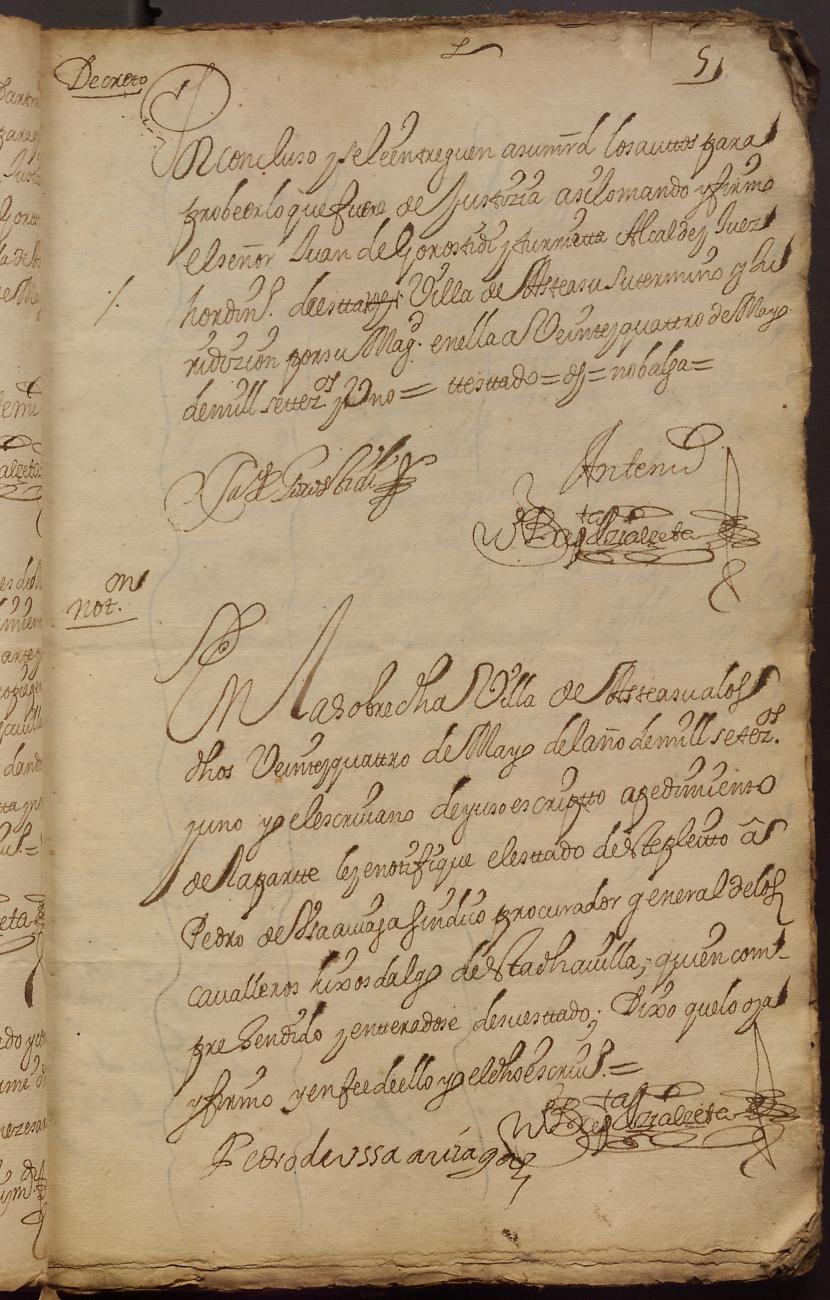 5
Decreto
Por concluso y se le entreguen a su mrd los auttos para
probeer lo que fuere de Justizia asi lo mando y firmo
el señor Juan de Gorostidi y Yturrietta Alcalde y Juez
hordin.º de estta dhi Villa de Asteasu su termino y Ju
ridizion por su Mag.d en ella a Veinte y quattro de Mayo
de mill settez.os y Uno = ttesttado = dhi = no balga =
Ju.º de Gorostidi
Ante mi
not.on
En la sobre dha Villa de Asteasu a los
dhos Veinte y quattro de Mayo del año de mill setez.os
y uno yo el escriuano de yuso escriptto a pedimiento
de la partte ley e notifique el esttado de este pleitto a
Pedro de Ussa auiaga sindico procurador general de los
caualleros hixosdalgo de esta dha uilla, quien com-
prehendido y entteradose de su esttado; Dixo que lo oya
y firmo y en fee de ello yo el dho escriu.º =
Pedro de ussa auiaga